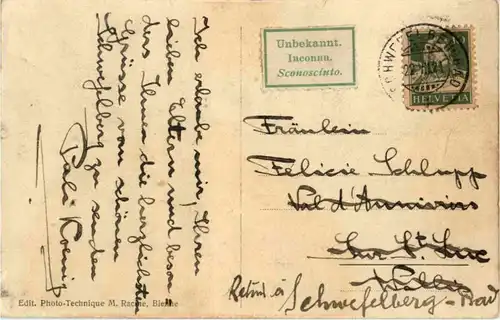 Ich erlaube mir, Ihren
lieben Eltern und beson=
ders Ihnen die herzlichsten
Grüsse vom schönen
Schwefelberg zu senden
Unbekannt.
Inconnu.
Sconosciuto.
SCHWEFELBERG-BAD
HELVETIA
Fräulein
Felicie Schlupp
Val d'Anniviers
Sur St. Luc
Wallis
Retour à
Schwefelberg-Bad
Edit. Photo-Technique M. Racine, Bienne